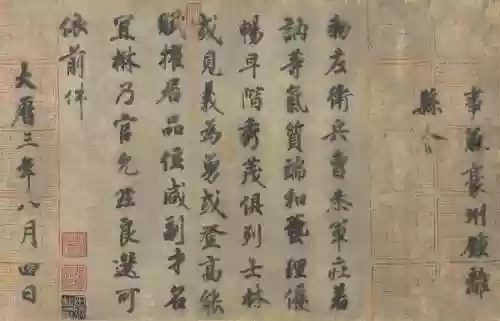 事兼豪州鍾離
縣令
勑左衛兵曹參軍莊若
訥等氣質端和藝理優
暢早階秀茂俱列士林
或見義為勇或登高能
賦擢居品位咸副才名
宜楙乃官允茲良選可
依前件
大曆三年八月四日